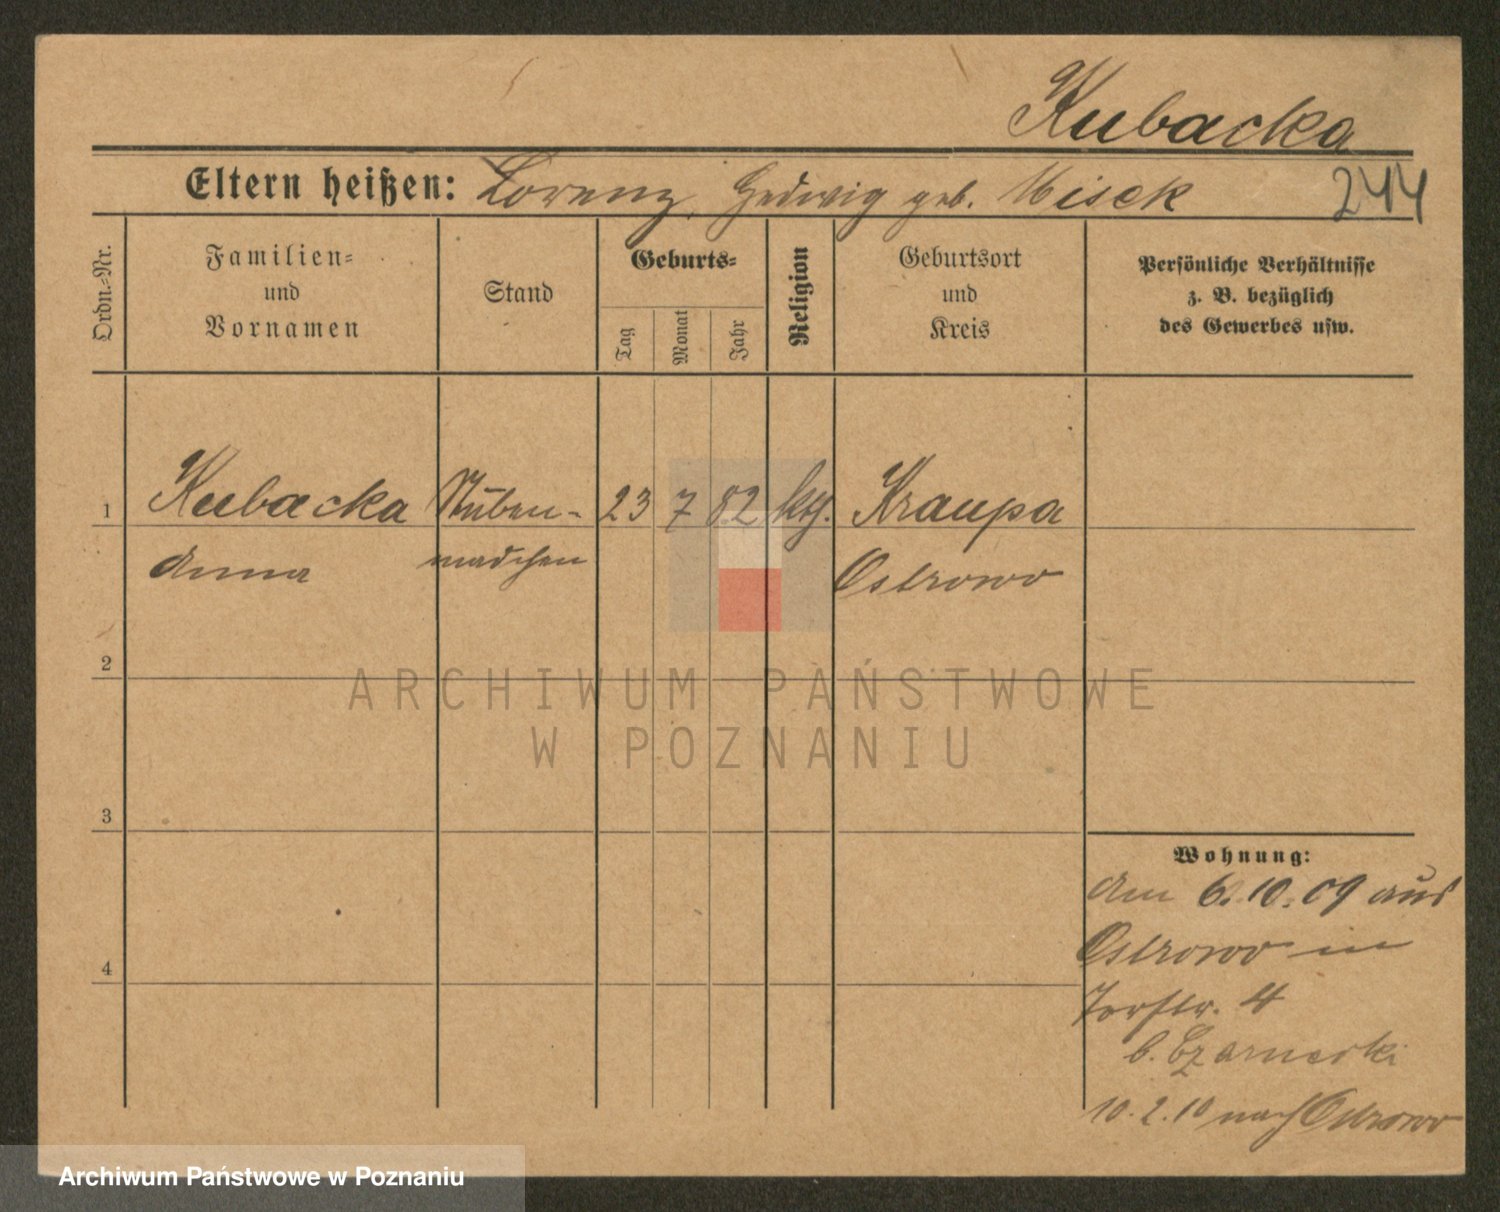 Kubacka
Eltern heißen: Lorenz, Hedwig geb. Misek
244
Ordn.-Nr.
Familien-
und
Vornamen
Stand
Geburts-
Tag
Monat
Jahr
Religion
Geburtsort
und
Kreis
Persönliche Verhältnisse
z. B. bezüglich
des Gewerbes usw.
1 Kubacka Stuben- 23 7 82 kth. Kraupa
Anna mädchen Ostrowo
2
ARCHIWUM PAŃSTWOWE
W POZNANIU
3
Wohnung:
Am 6.10.09 aus
Ostrowo in
Torstr. 4
b. Czarnecki
10.2.10 nach Ostrowo
4
Archiwum Państwowe w Poznaniu